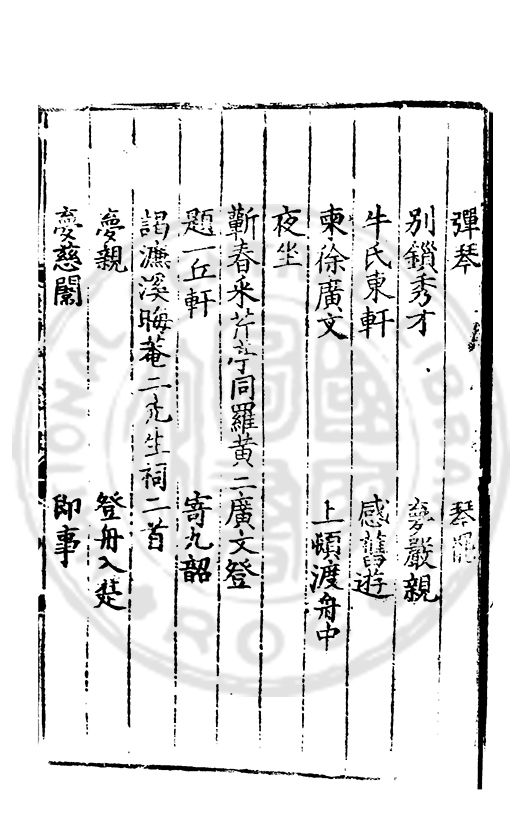 彈琴　琴罷
別鎖秀才　夢嚴親
牛氏東軒　感舊遊
柬徐廣文　上頓渡舟中
夜坐
蘄春采芹亭同羅黃二廣文登
題一丘軒　寄九韶
謁濂溪晦菴二先生祠二首
夢親　登舟入楚
夢慈闈　即事